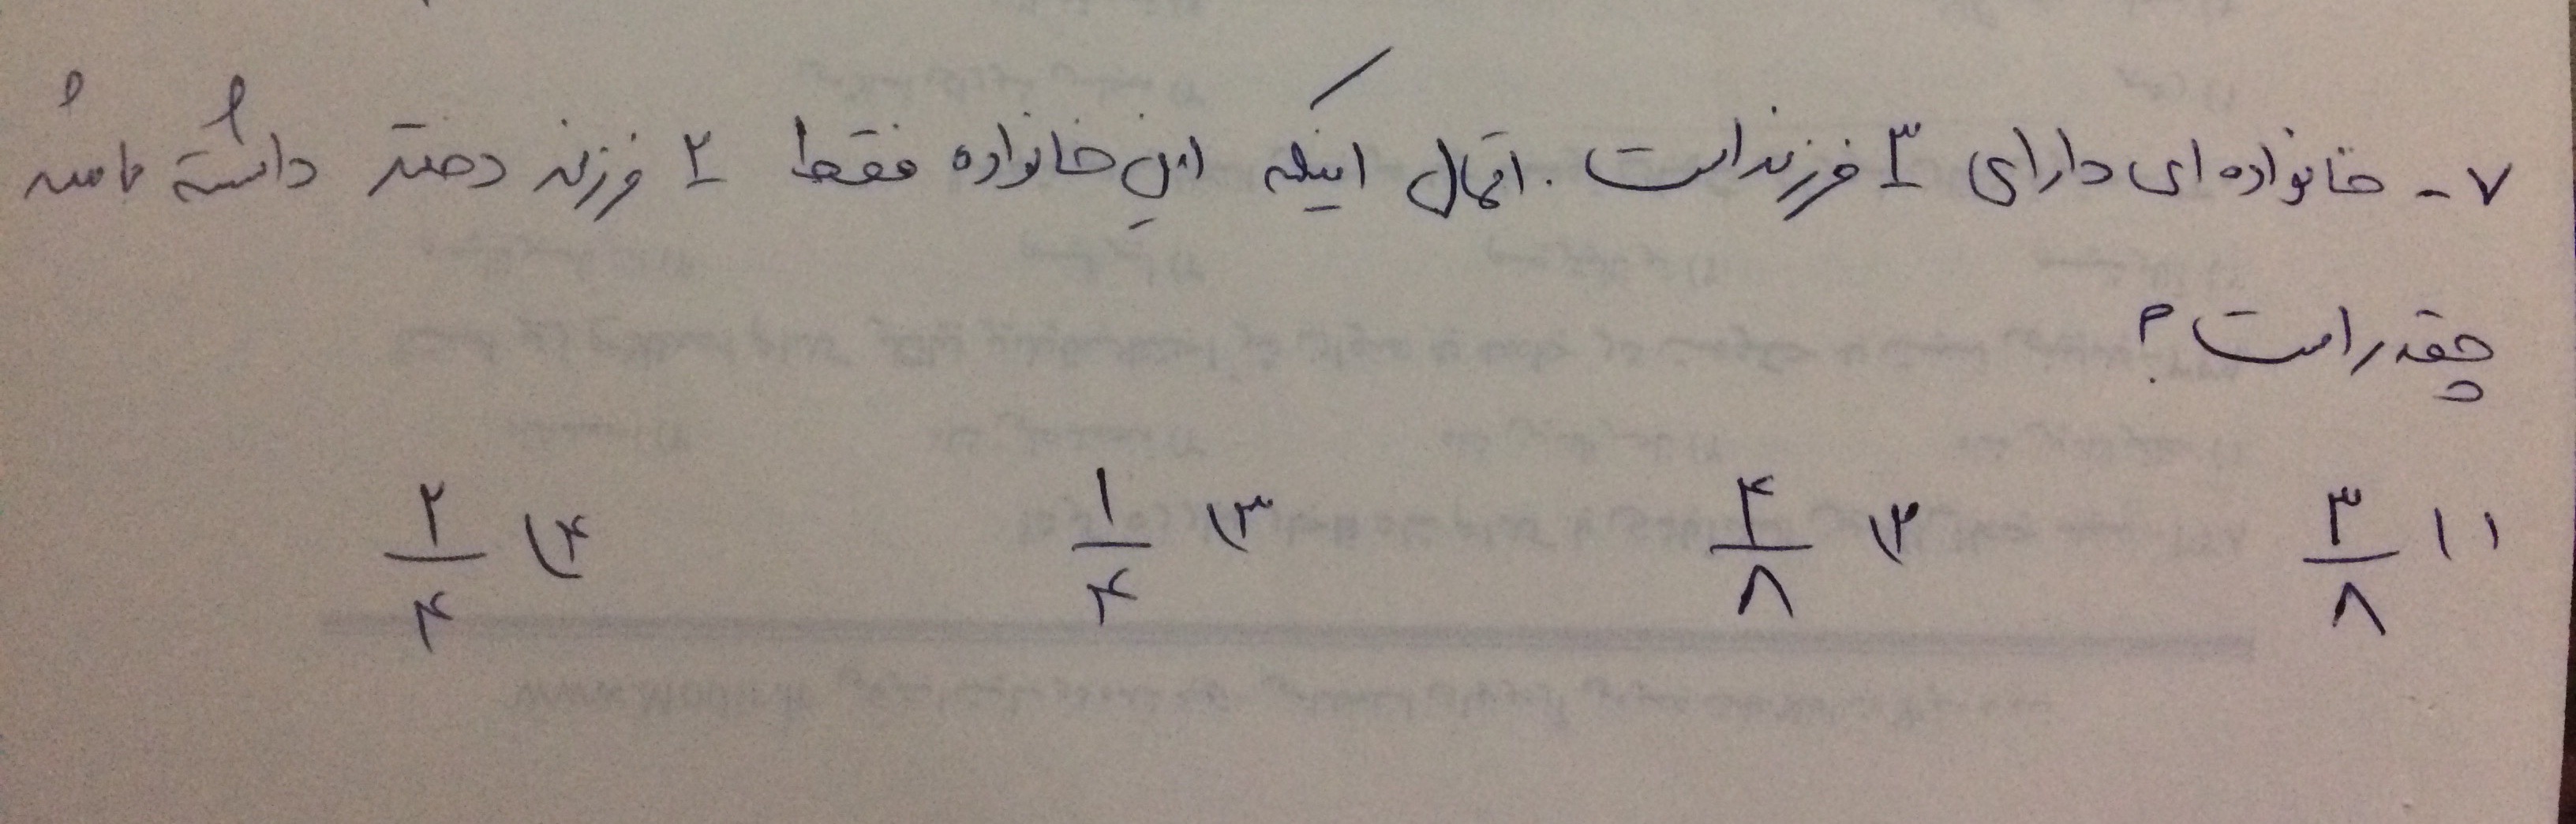 ۷- خانواده ای دارای ۳ فرزند است. احتمال اینکه این خانواده فقط ۲ فرزند دختر داشته باشد
چقدر است؟
۱) ۳/۸ ۲) ۴/۸ ۳) ۱/۴ ۴) ۲/۴